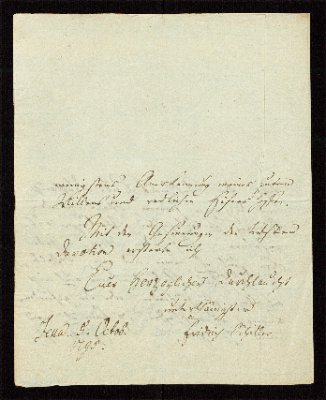 wenigstens Anerkennung meines guten
Willens und redlichen Eifers hoffen.
Mit den Gesinnungen der tiefsten
Devotion ersterbe ich
Euer Herzoglichen Durchlaucht
unterthänigster
Fridrich Schiller
Jena. 5. Octob.
1795.